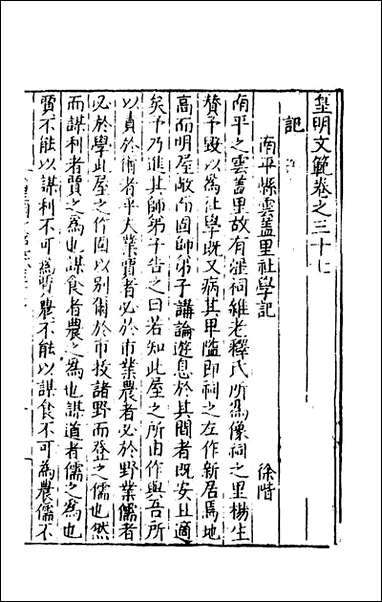 皇明文範卷之三十七
記
南平縣雲蓋里社學記
徐階
南平之雲蓋里故有淫祠雜老釋氏所為像祠之里楊生
贊予毀以為社學旣又病其卑隘即祠之左作新居焉地
高而明屋敞而固師弟子講論遊息於其間者旣安且適
矣予乃進其師弟子告之曰若知此屋之所由作與吾所
以責於術者乎夫業賈者必於市業農者必於野業儒者
必於學此屋之作固以別爾於市投諸野而登之儒也然
而謀利者賈之為也謀食者農之為也謀道者儒之為也
賈不能以謀利不可為賈農不能以謀食不可為農儒不